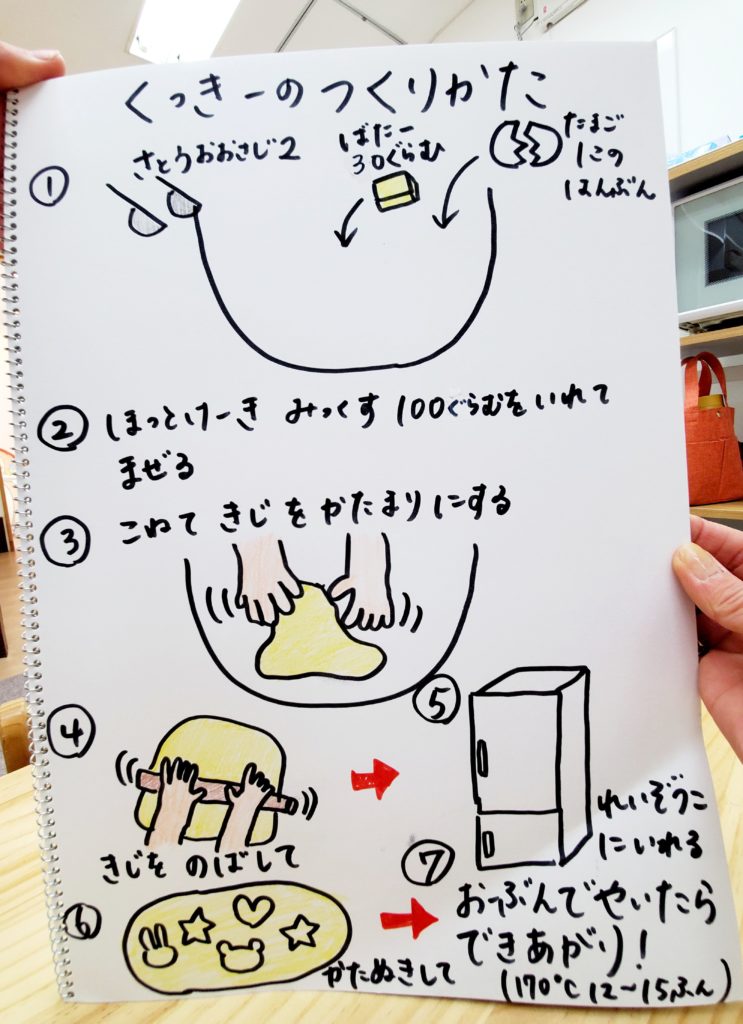 くっきーのつくりかた
① さとうおおさじ2
ばたー
30ぐらむ
たまご
1この
はんぶん
② ほっとけーき みっくす 100ぐらむをいれて
まぜる
③ こねて きじを かたまりにする
④
きじを のばして
⑤
れいぞうこ
にいれる
⑥
かたぬきして
⑦
おーぶんでやいたら
できあがり!
(170℃ 12〜15ふん)